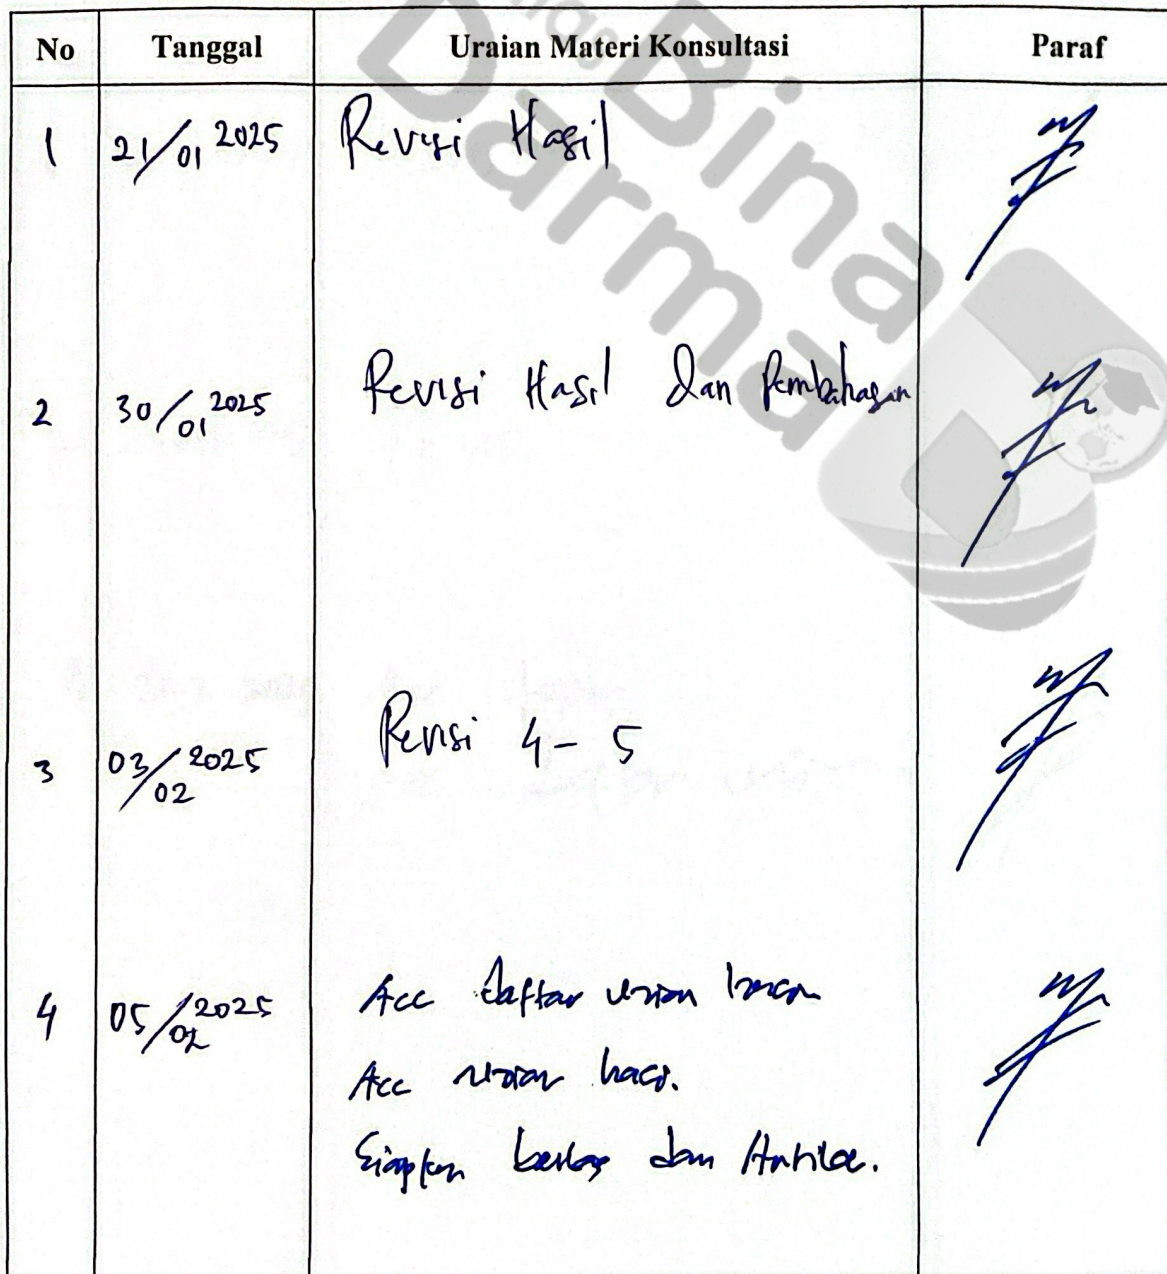 No Tanggal Uraian Materi Konsultasi Paraf
1 21/01 2025 Revisi Hasil
2 30/01 2025 Revisi Hasil dan Pembahasan
3 03/02 2025 Revisi 4-5
4 05/02 2025 Acc daftar ujian
Acc ujian
Siapkan berkas dan Artikel.
Bina
Darma